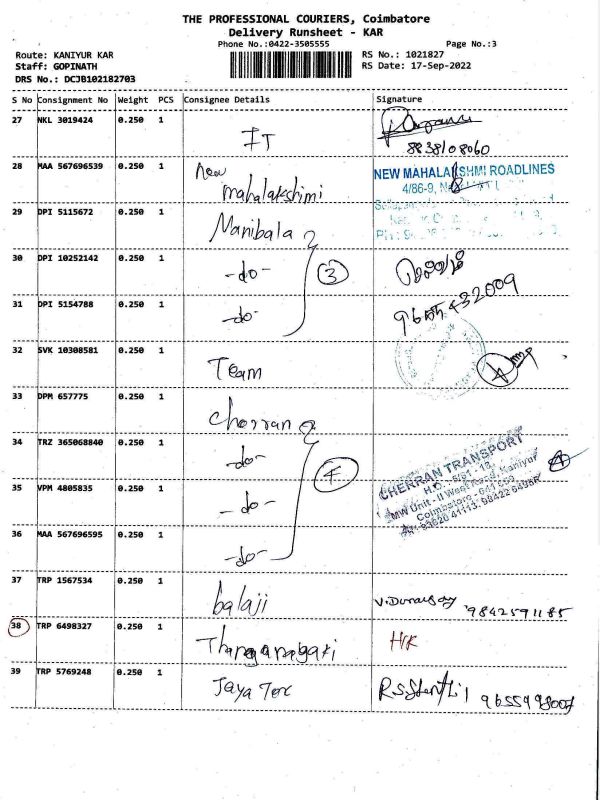 THE PROFESSIONAL COURIERS, Coimbatore
Delivery Runsheet - KAR
Phone No.:0422-3505555 Page No.:3
Route: KANIYUR KAR RS No.: 1021827
Staff: GOPINATH RS Date: 17-Sep-2022
DRS No.: DCJB102182703
S No Consignment No Weight PCS Consignee Details Signature
27 NKL 3019424 0.250 1 IT
8838108060
28 MAA 567696539 0.250 1 New mahalakshimi
NEW MAHALAKSHMI ROADLINES
4/86-9,
29 DPI 5115672 0.250 1 Manibala
30 DPI 10252142 0.250 1 -do- 3
31 DPI 5154788 0.250 1 -do-
32 SVK 10308581 0.250 1 Team
33 DPM 657775 0.250 1 Cherran
34 TRZ 365068840 0.250 1 -do- 4
CHERRAN TRANSPORT
35 VPM 4805835 0.250 1 -do-
36 MAA 567696595 0.250 1 -do-
37 TRP 1567534 0.250 1 balaji 9842591185
38 TRP 6498327 0.250 1
39 TRP 5769248 0.250 1